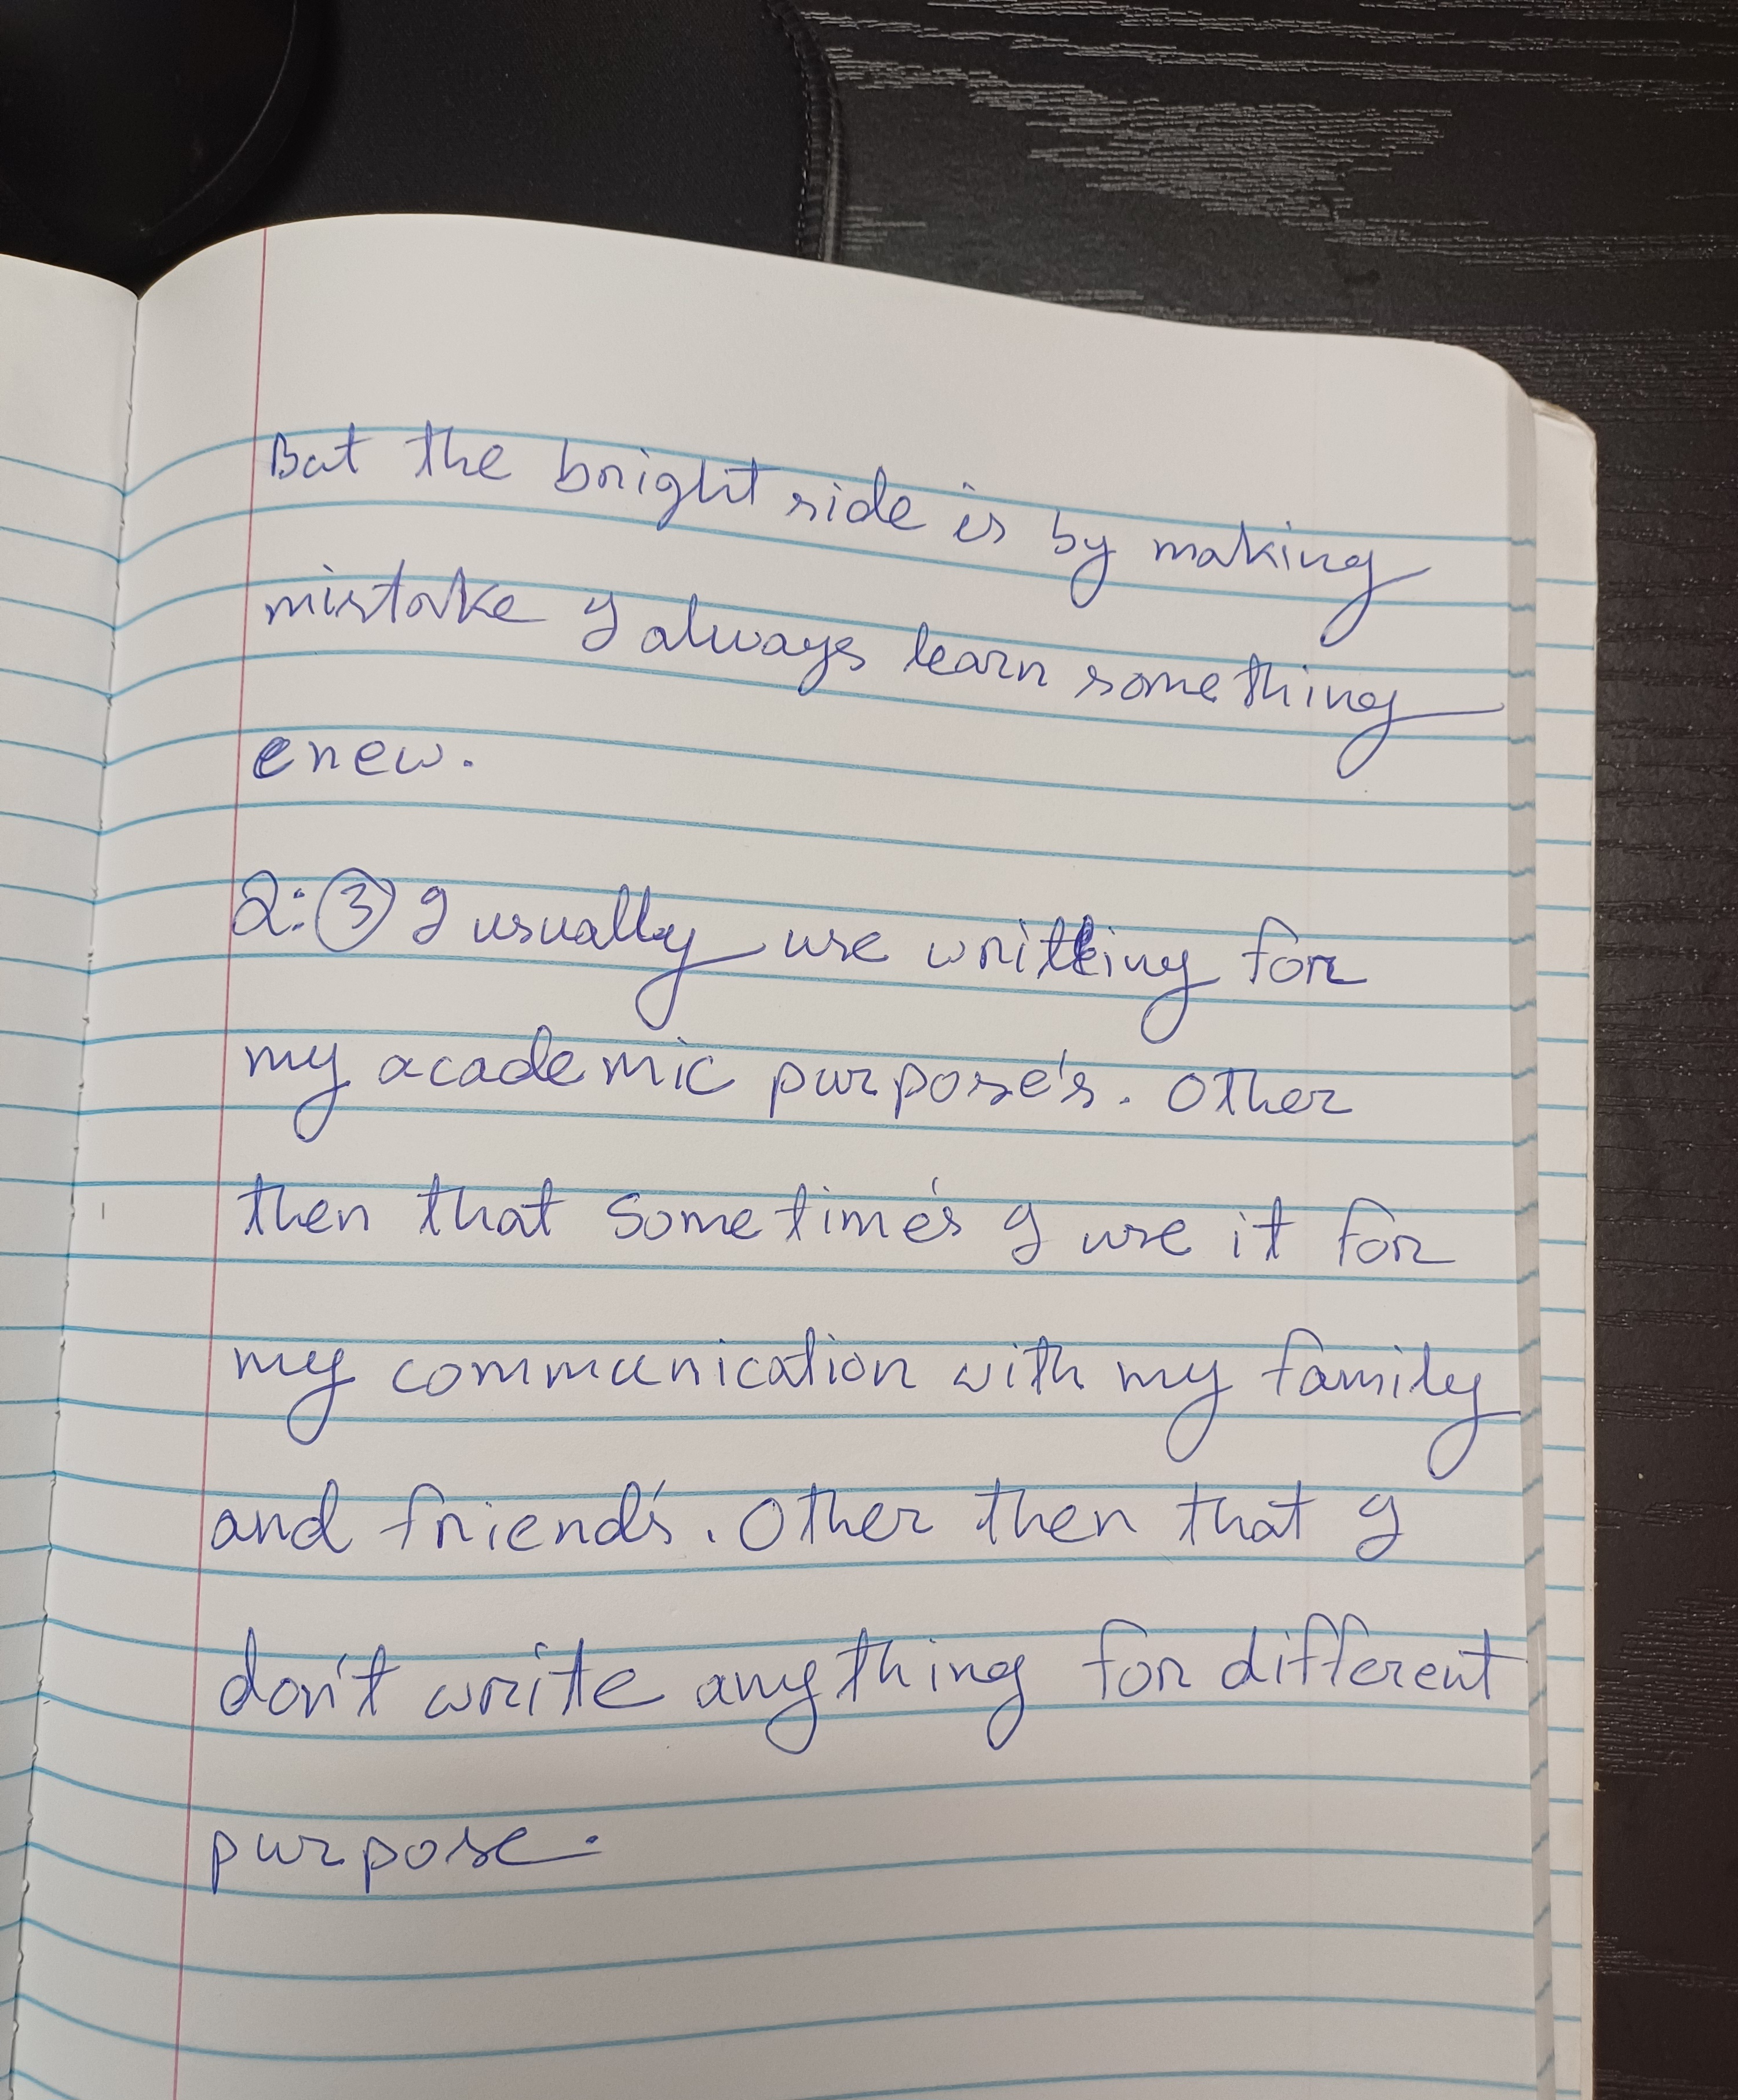 But the bright side is by making
mistake I always learn something
enew.
2: 3 I usually use writting for
my academic purpose's. Other
then that sometime's I use it for
my communication with my family
and friend's. Other then that I
don't write anything for different
purpose.